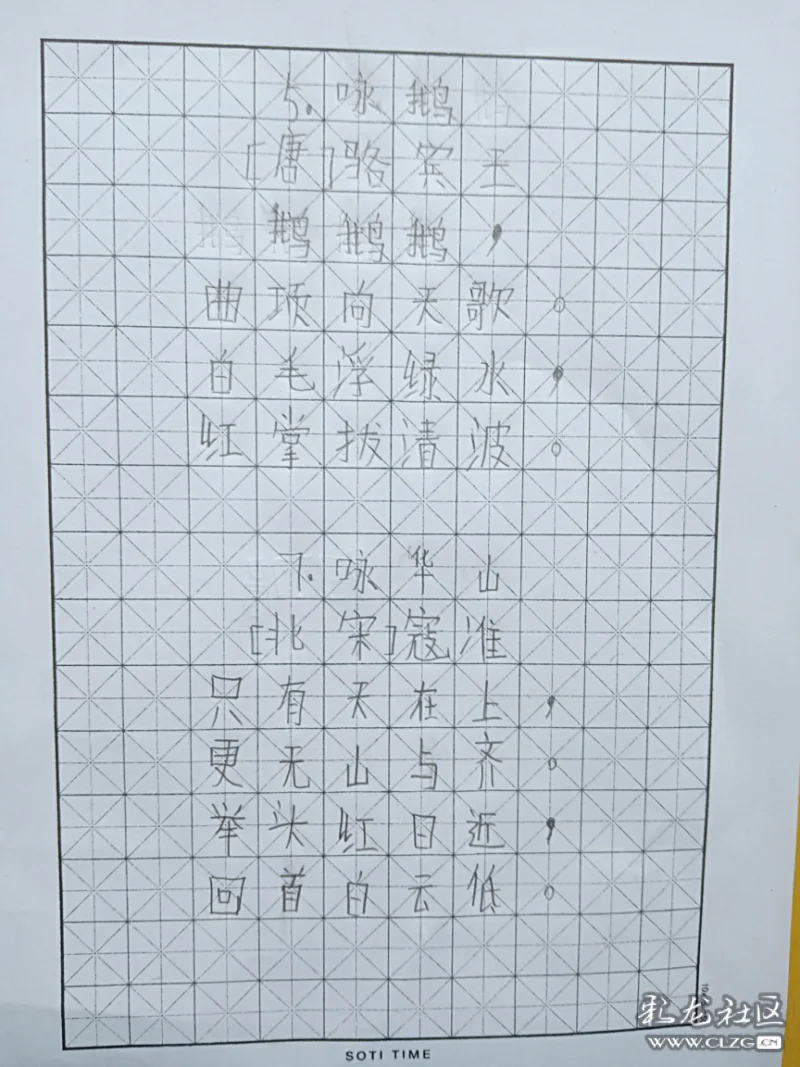 5.咏鹅
[唐]骆宾王
鹅鹅鹅，
曲项向天歌。
白毛浮绿水，
红掌拔清波。
7.咏华山
[北宋]寇准
只有天在上，
更无山与齐。
举头红日近，
回首白云低。
SOTI TIME
彩龙社区
WWW.CLZG.CN